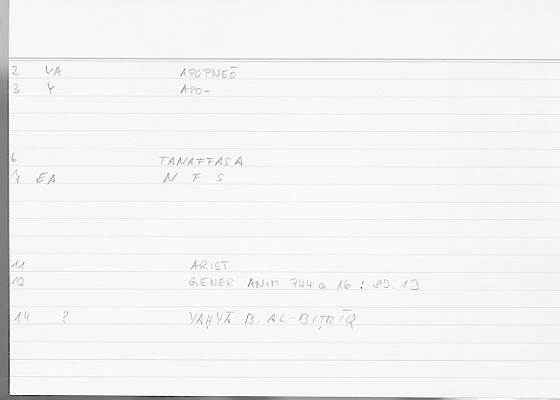 2 VA APOPNEŌ
3 Y APO-
6 TANAFFASA
7 EA N F S
11 ARIST
12 GENER ANIM 744 a 16 : 89.13
14 ? YAḤYĀ B. AL-BIṬRĪQ